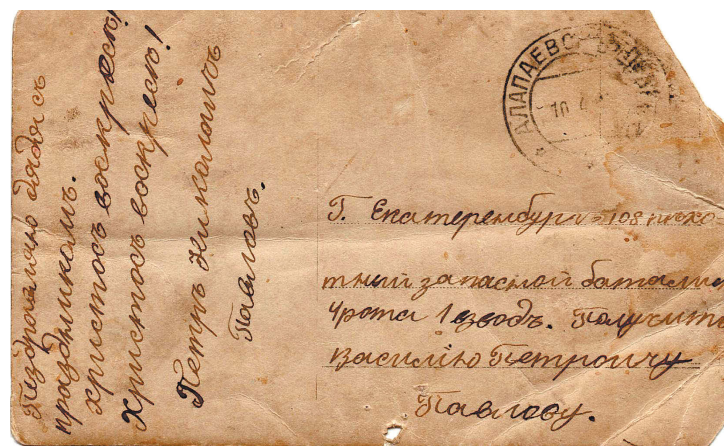 Поздровляю дядя съ
праздникомъ.
христосъ воскресъ!
Христосъ воскресъ!
Петръ Николаичъ
Павловъ.
АЛАПАЕВС
10 4
Г. Екатеренбургъ 108 пѣхо
тний запасной баталио
4 рота 1 взводъ. Получить
Василию Петровичу
Павлову.